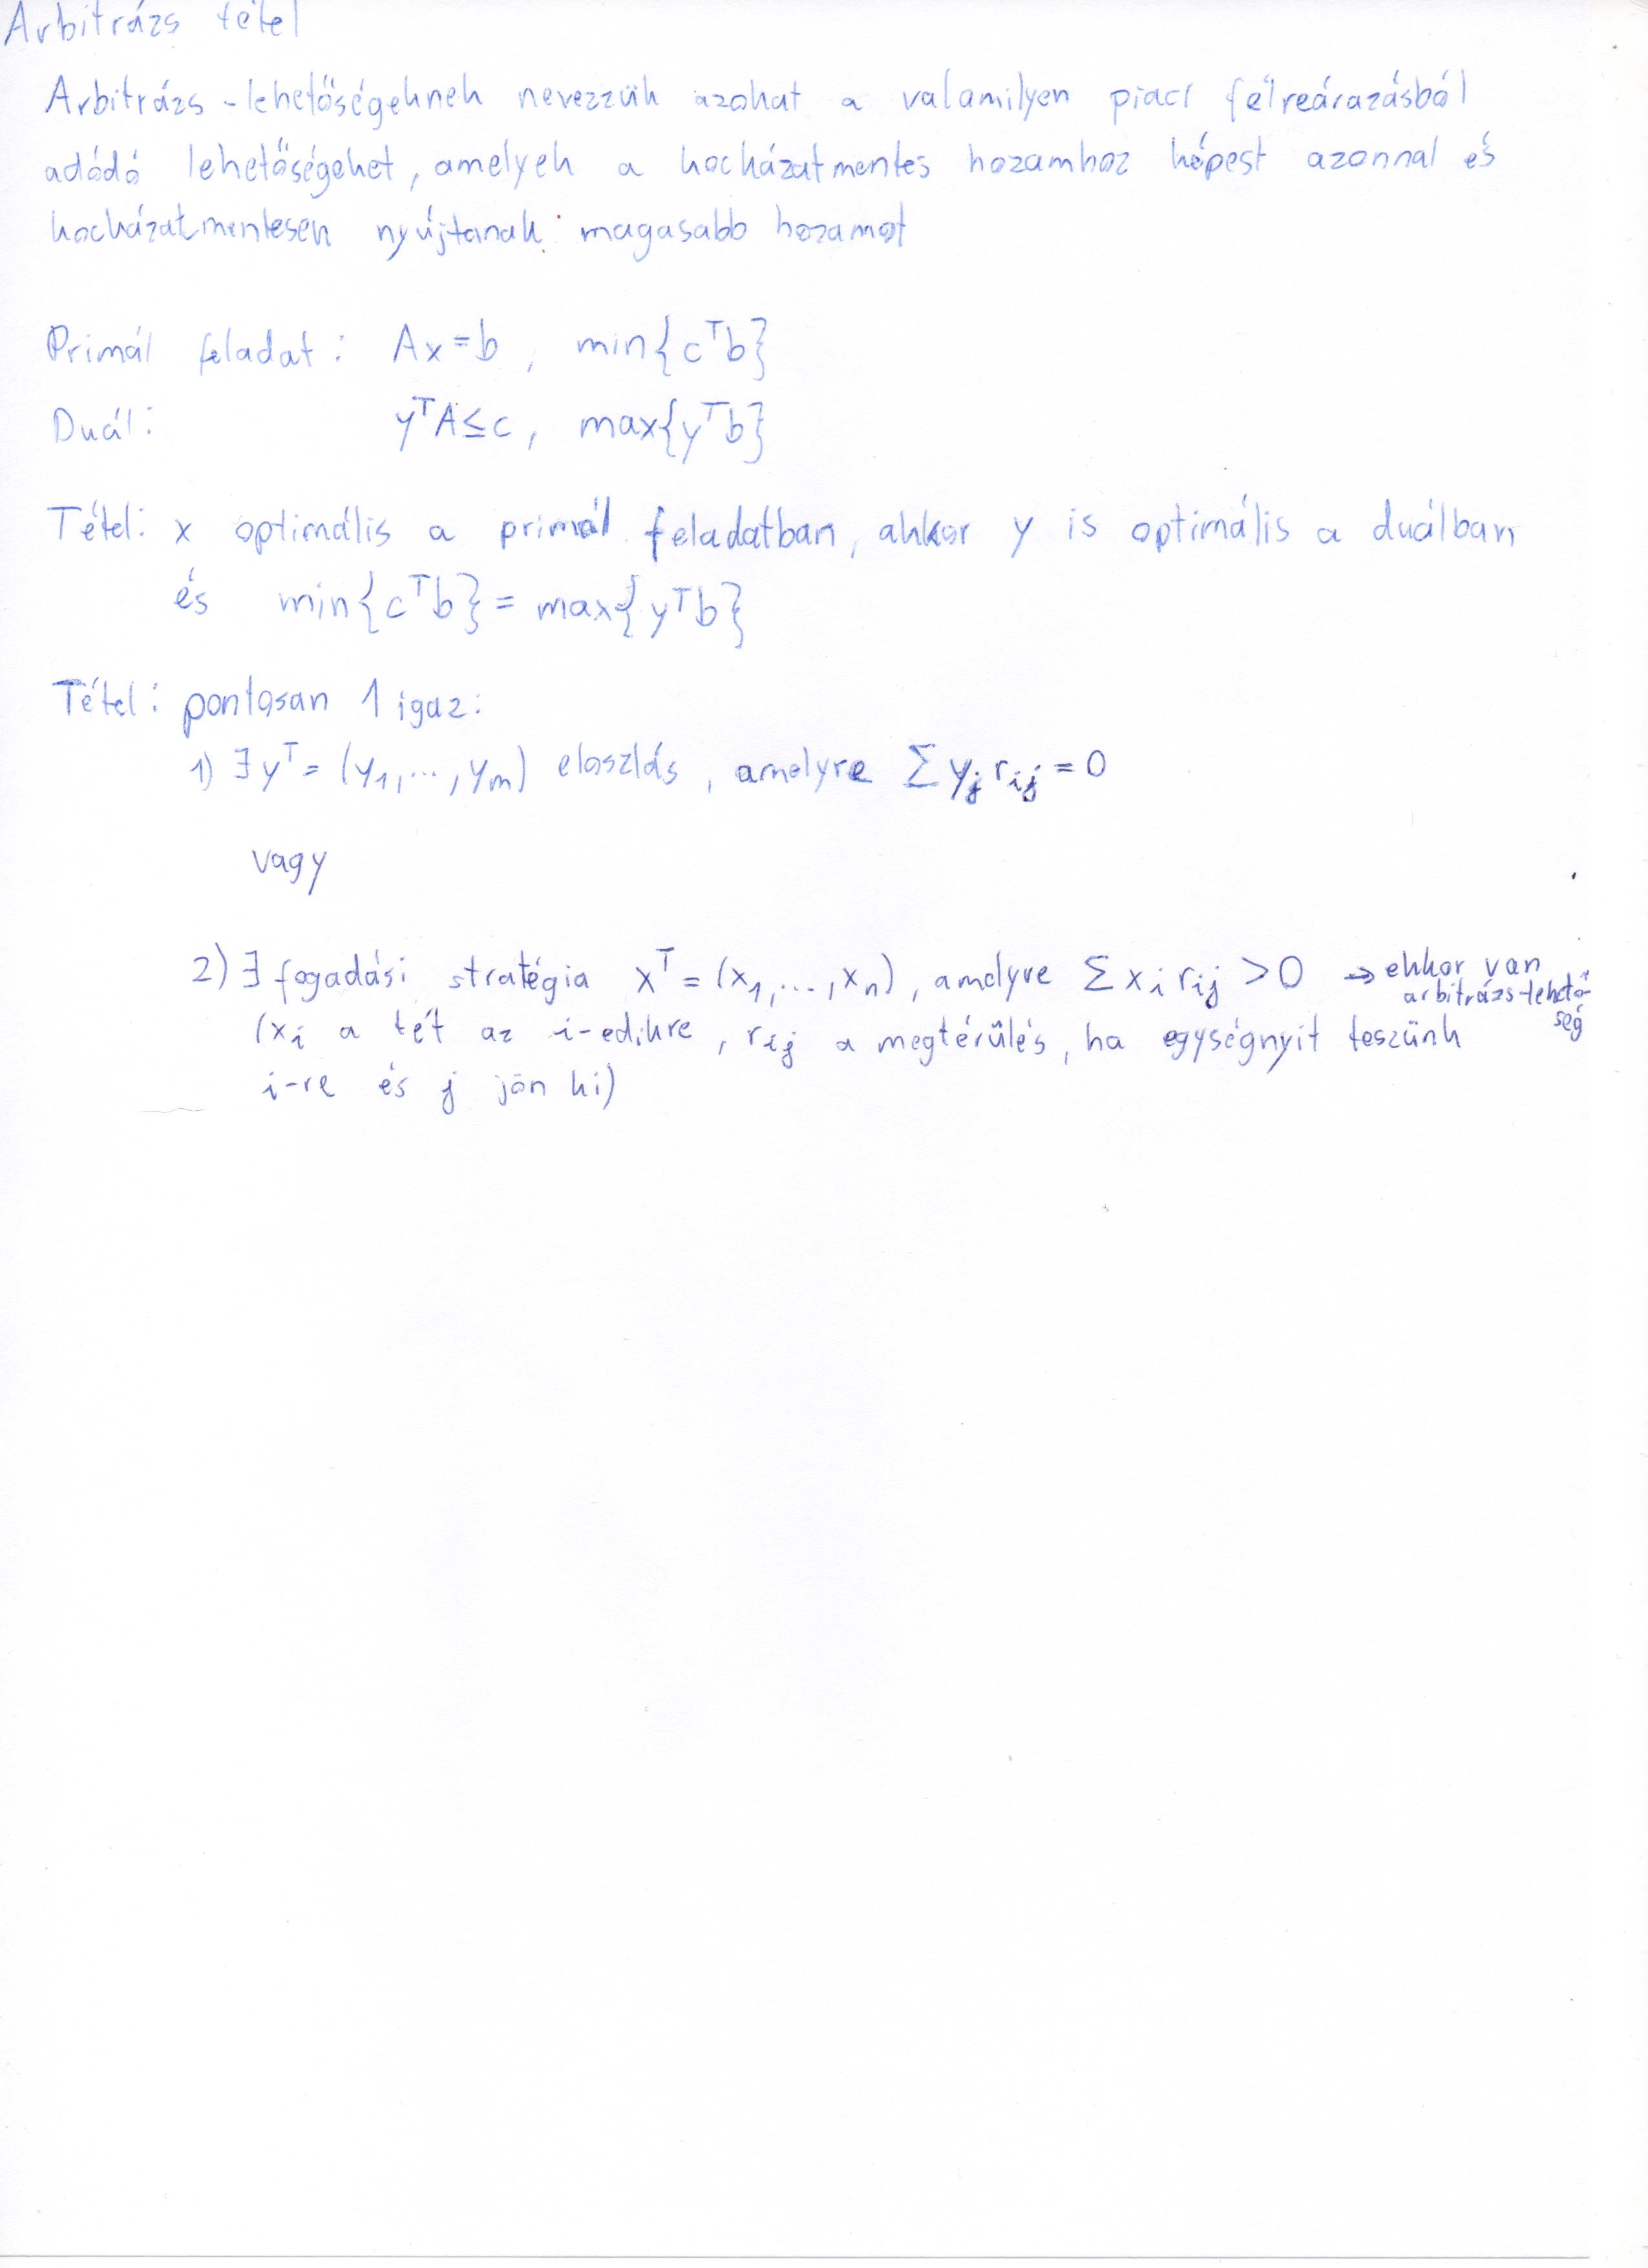 Arbitrázs tétel
Arbitrázs-lehetőségeknek nevezzük azokat a valamilyen piaci félreárazásból
adódó lehetőségeket, amelyek a kockázatmentes hozamhoz képest azonnal és
kockázatmentesen nyújtanak magasabb hozamot
Primál feladat: Ax=b, min{cᵀb}
Duál: yᵀA≤c, max{yᵀb}
Tétel: x optimális a primál feladatban, akkor y is optimális a duálban
és min{cᵀb} = max{yᵀb}
Tétel: pontosan 1 igaz:
1) ∃ yᵀ = (y₁,...,yₘ) eloszlás, amelyre Σ yⱼ rᵢⱼ = 0
vagy
2) ∃ fogadási stratégia xᵀ = (x₁,...,xₙ), amelyre Σ xᵢ rᵢⱼ > 0 → ekkor van
arbitrázs-lehető-
ség
(xᵢ a tét az i-edikre, rᵢⱼ a megtérülés, ha egységnyit teszünk
i-re és j jön ki)